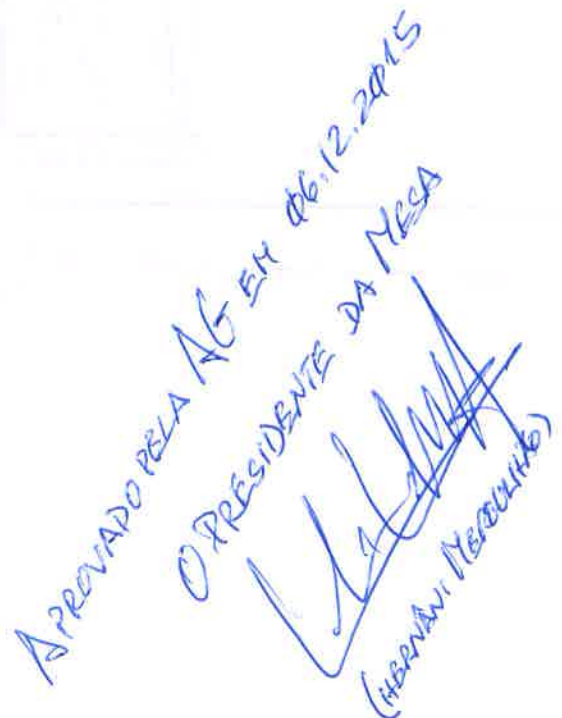 APROVADO PELA AG EM 06.12.2015
O PRESIDENTE DA MESA
(HERNÂNI MERGULHÃO)